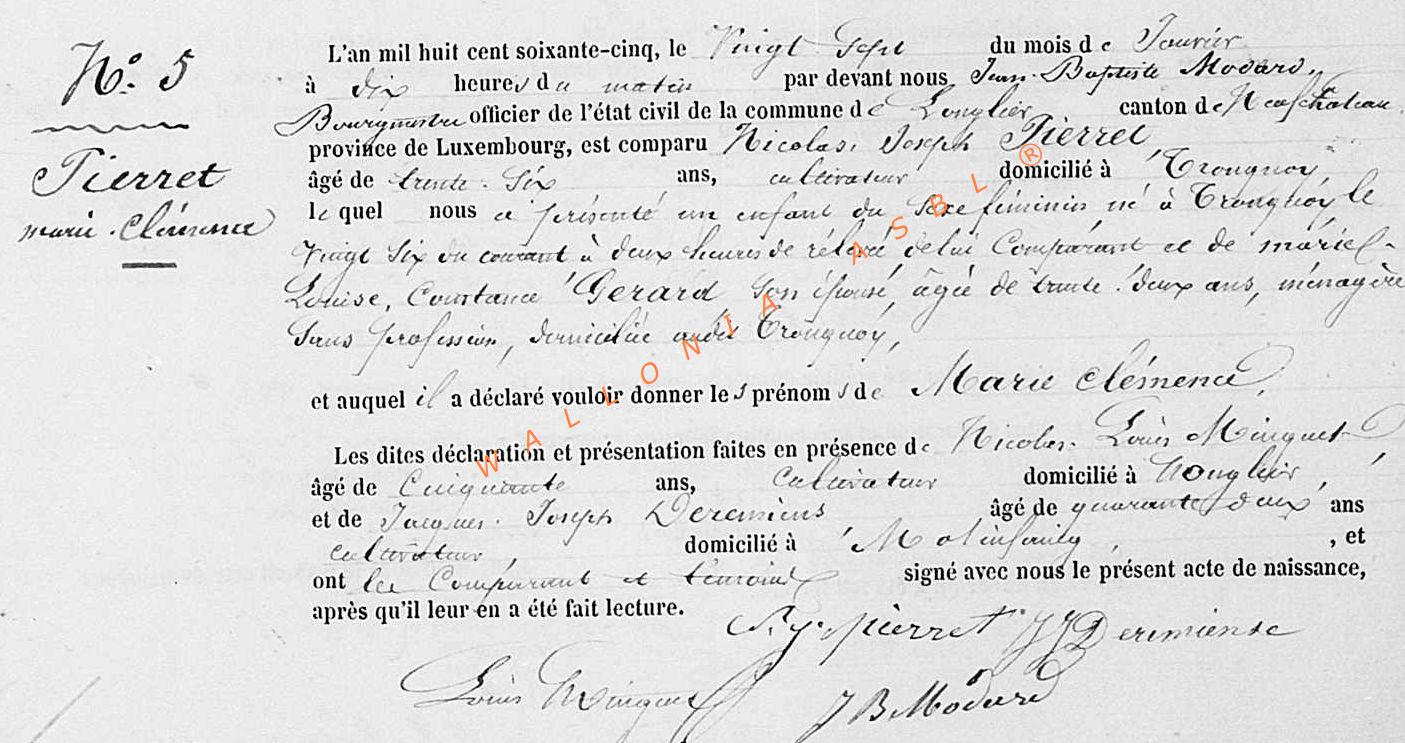 N.º 5
Pierret
marie Clémence
L'an mil huit cent soixante-cinq, le Vingt Sept du mois de Janvier
à dix heures du matin par devant nous Jean-Baptiste Modard,
Bourgmestre officier de l'état civil de la commune de Longlier canton de Neufchâteau
province de Luxembourg, est comparu Nicolas, Joseph Pierret,
âgé de trente-Six ans, cultivateur domicilié à Tronquoy,
le quel nous a présenté un enfant du Sexe féminin né à Tronquoy le
Vingt Six du courant à deux heures de rélevé, de lui Comparant et de marie
Louise, Constance Gerard Son épouse, âgée de trente-deux ans, ménagère
Sans profession, domiciliée audit Tronquoy,
et auquel il a déclaré vouloir donner les prénoms de Marie Clémence,
Les dites déclaration et présentation faites en présence de Nicolas-Louis Minguet
âgé de Cinquante ans, Cultivateur domicilié à Longlier,
et de Jacques-Joseph Deremiens âgé de quarante deux ans
cultivateur, domicilié à Molinfaing, , et
ont les Comparant et témoins signé avec nous le présent acte de naissance,
après qu'il leur en a été fait lecture.
pierret JJ Deremiense
Louis Minguet JB Modard
WALLONIA ASBL ®